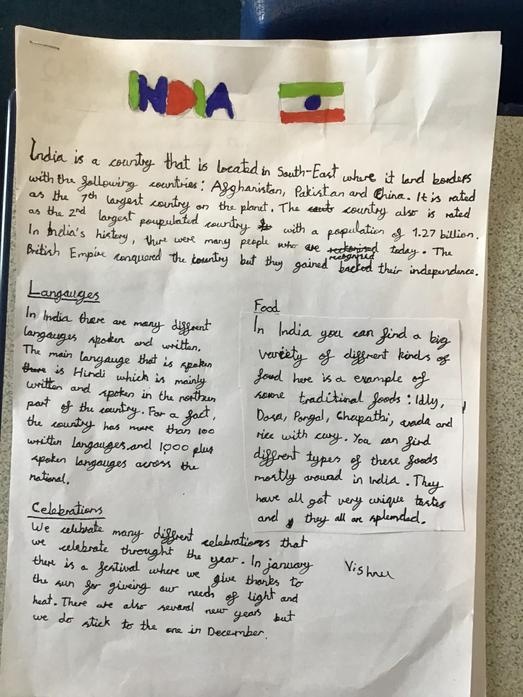 INDIA
India is a country that is located in South-East where it land borders
with the following countries: Afghanistan, Pakistan and China. It is rated
as the 7th largest country on the planet. The country also is rated
as the 2nd largest poupulated country with a population of 1.27 billion.
In India's history, there were many people who are recognised today. The
British Empire conquered the country but they gained backed their independence.
Langauges
In India there are many diffrent
langauges spoken and written.
The main langauge that is spoken
is Hindi which is mainly
written and spoken in the northen
part of the country. For a fact,
the country has more than 100
written langauges and 1000 plus
spoken langauges across the
national.
Food
In India you can find a big
variety of diffrent kinds of
food here is a example of
some traditional foods: Idly,
Dosa, Pongal, Chapathi, vada and
rice with curry. You can find
diffrent types of these foods
mostly around in India. They
have all got very unique tastes
and they all are splended.
Celebrations
We celebrate many diffrent celebrations that
we celebrate throught the year. In january
there is a festival where we give thanks to
the sun for giveing our needs of light and
heat. There are also several new years but
we do stick to the one in December.
Vishnu